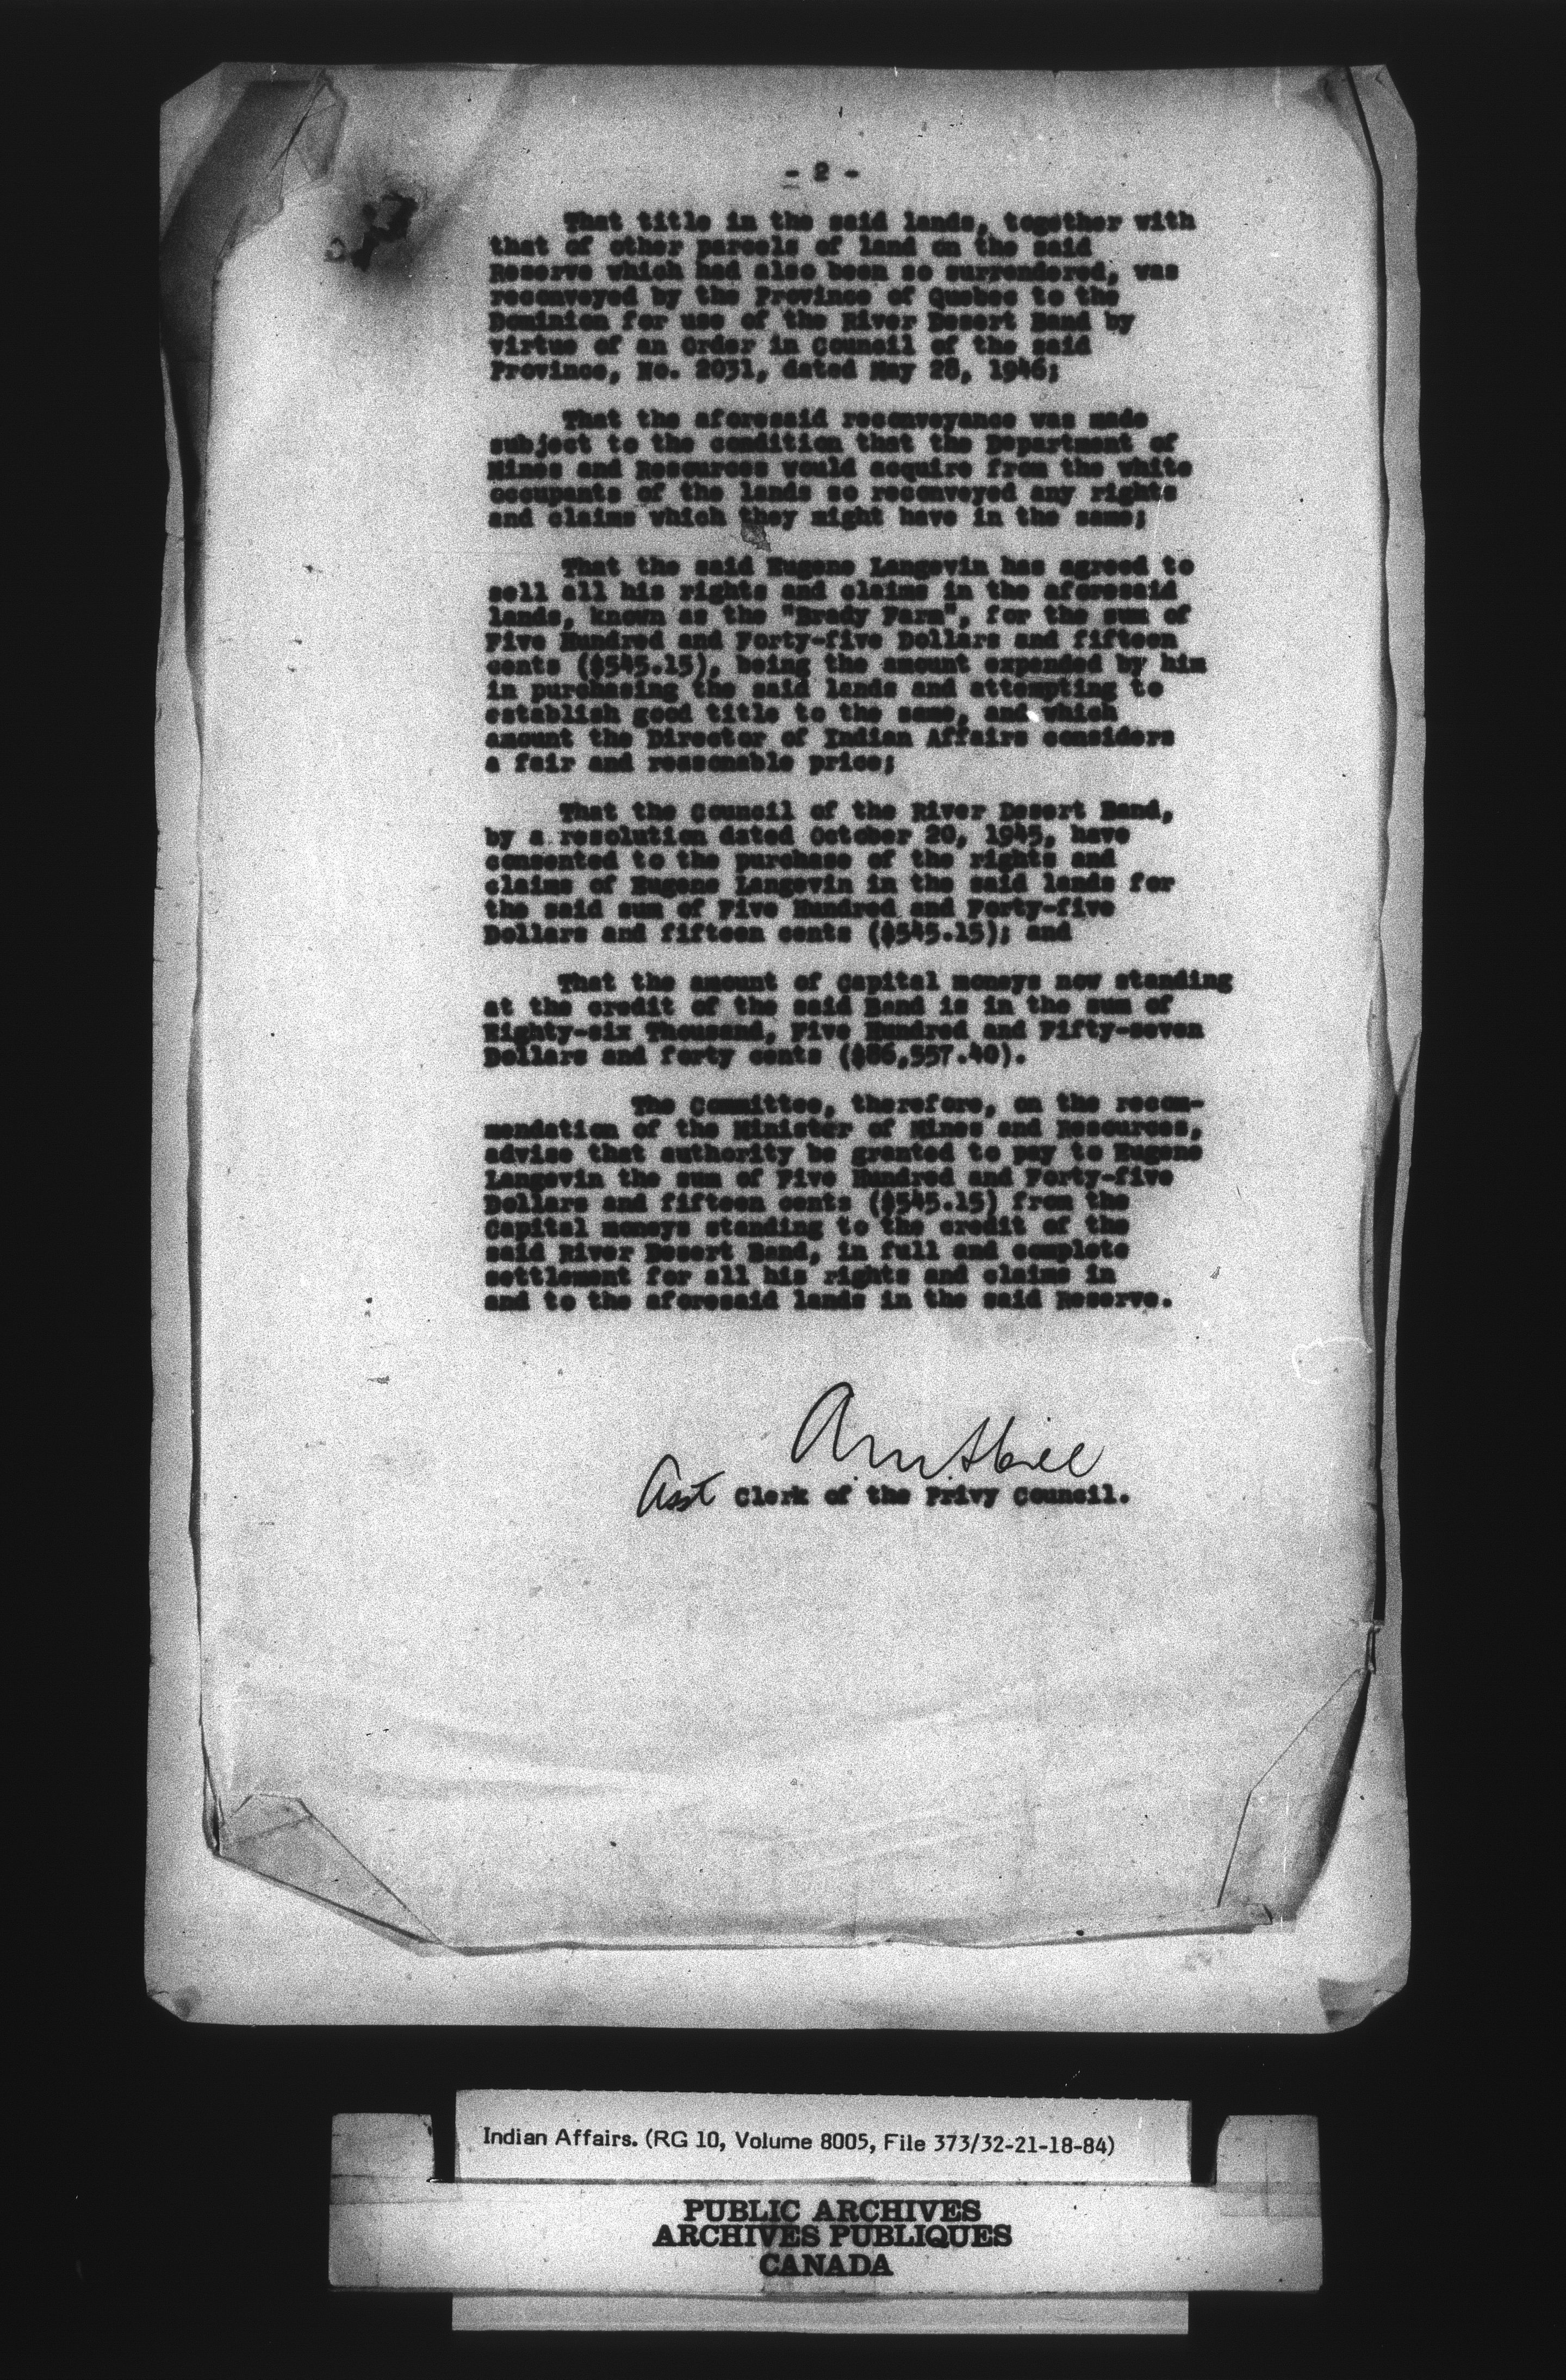 - 2 -
That title in the said lands, together with
that of other parcels of land on the said
Reserve which had also been so surrendered, was
reconveyed by the Province of Quebec to the
Dominion for use of the River Desert Band by
virtue of an Order in Council of the said
Province, No. 2031, dated May 28, 1946;
That the aforesaid reconveyance was made
subject to the condition that the Department of
Mines and Resources would acquire from the white
occupants of the lands so reconveyed any rights
and claims which they might have in the same;
That the said Eugene Langevin has agreed to
sell all his rights and claims in the aforesaid
lands, known as the "Brody Farm", for the sum of
Five Hundred and Forty-five Dollars and fifteen
cents ($545.15), being the amount expended by him
in purchasing the said lands and attempting to
establish good title to the same, and which
amount the Director of Indian Affairs considers
a fair and reasonable price;
That the Council of the River Desert Band,
by a resolution dated October 20, 1945, have
consented to the purchase of the rights and
claims of Eugene Langevin in the said lands for
the said sum of Five Hundred and Forty-five
Dollars and fifteen cents ($545.15); and
That the amount of Capital moneys now standing
at the credit of the said Band is in the sum of
Eighty-six Thousand, Five Hundred and Fifty-seven
Dollars and forty cents ($86,557.40).
The Committee, therefore, on the recom-
mendation of the Minister of Mines and Resources,
advise that authority be granted to pay to Eugene
Langevin the sum of Five Hundred and Forty-five
Dollars and fifteen cents ($545.15) from the
Capital moneys standing to the credit of the
said River Desert Band, in full and complete
settlement for all his rights and claims in
and to the aforesaid lands in the said Reserve.
Asst Clerk of the Privy Council.
Indian Affairs. (RG 10, Volume 8005, File 373/32-21-18-84)
PUBLIC ARCHIVES
ARCHIVES PUBLIQUES
CANADA